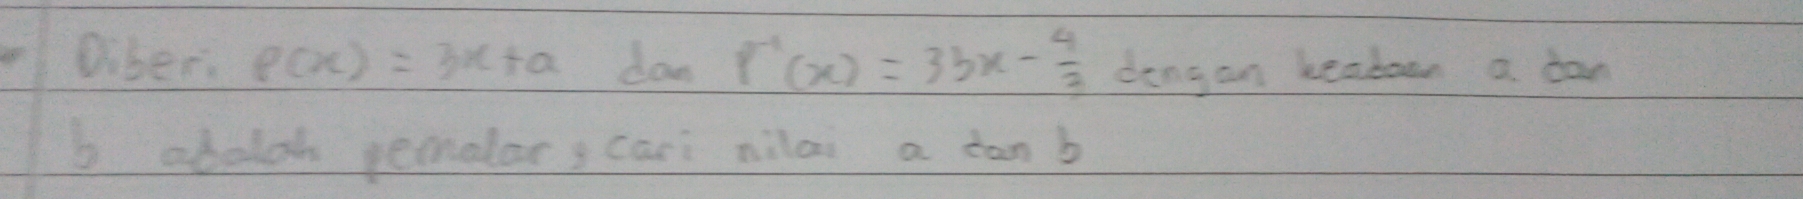 Diberi P(x) = 3x + a dan P⁻¹(x) = 3bx - 4/3 dengan keadaan a dan
b adalah pemalar, cari nilai a dan b